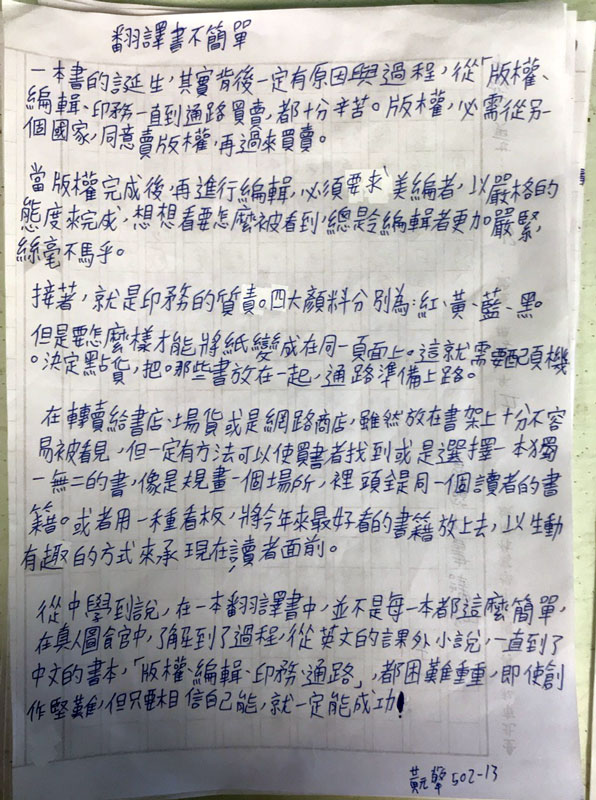 翻譯書不簡單
一本書的誕生,其實背後一定有原因與過程,從「版權、
編輯、印務一直到通路買賣,都十分辛苦。版權,必需從另一
個國家,同意賣版權,再過來買賣。
當版權完成後,再進行編輯,必須要求美編者,以嚴格的
態度來完成,想想看要怎麼被看到,總是令編輯者更加嚴緊,
絲毫不馬乎。
接著,就是印務的質責。四大顏料分別為:紅、黃、藍、黑。
但是要怎麼樣才能將紙變成在同一頁面上。這就需要配頁機
。決定點貨,把。那些書放在一起,通路準備上路。
在轉賣給書店、場貨或是網路商店,雖然放在書架上十分不容
易被看見,但一定有方法可以使買書者找到或是選擇一本獨
一無二的書,像是規畫一個場所,裡頭是同一個讀者的書
籍。或者用一種看板,將今年來最好看的書籍放上去,以生動
有趣的方式來承現在讀者面前。
從中學到說,在一本翻譯書中,並不是每一本都這麼簡單,
在真人圖食官中,了解到了過程,從英文的課外小說,一直到了
中文的書本,「版權、編輯、印務、通路」,都困難重重,即使創
作堅難,但只要相信自己能,就一定能成功!
502-13